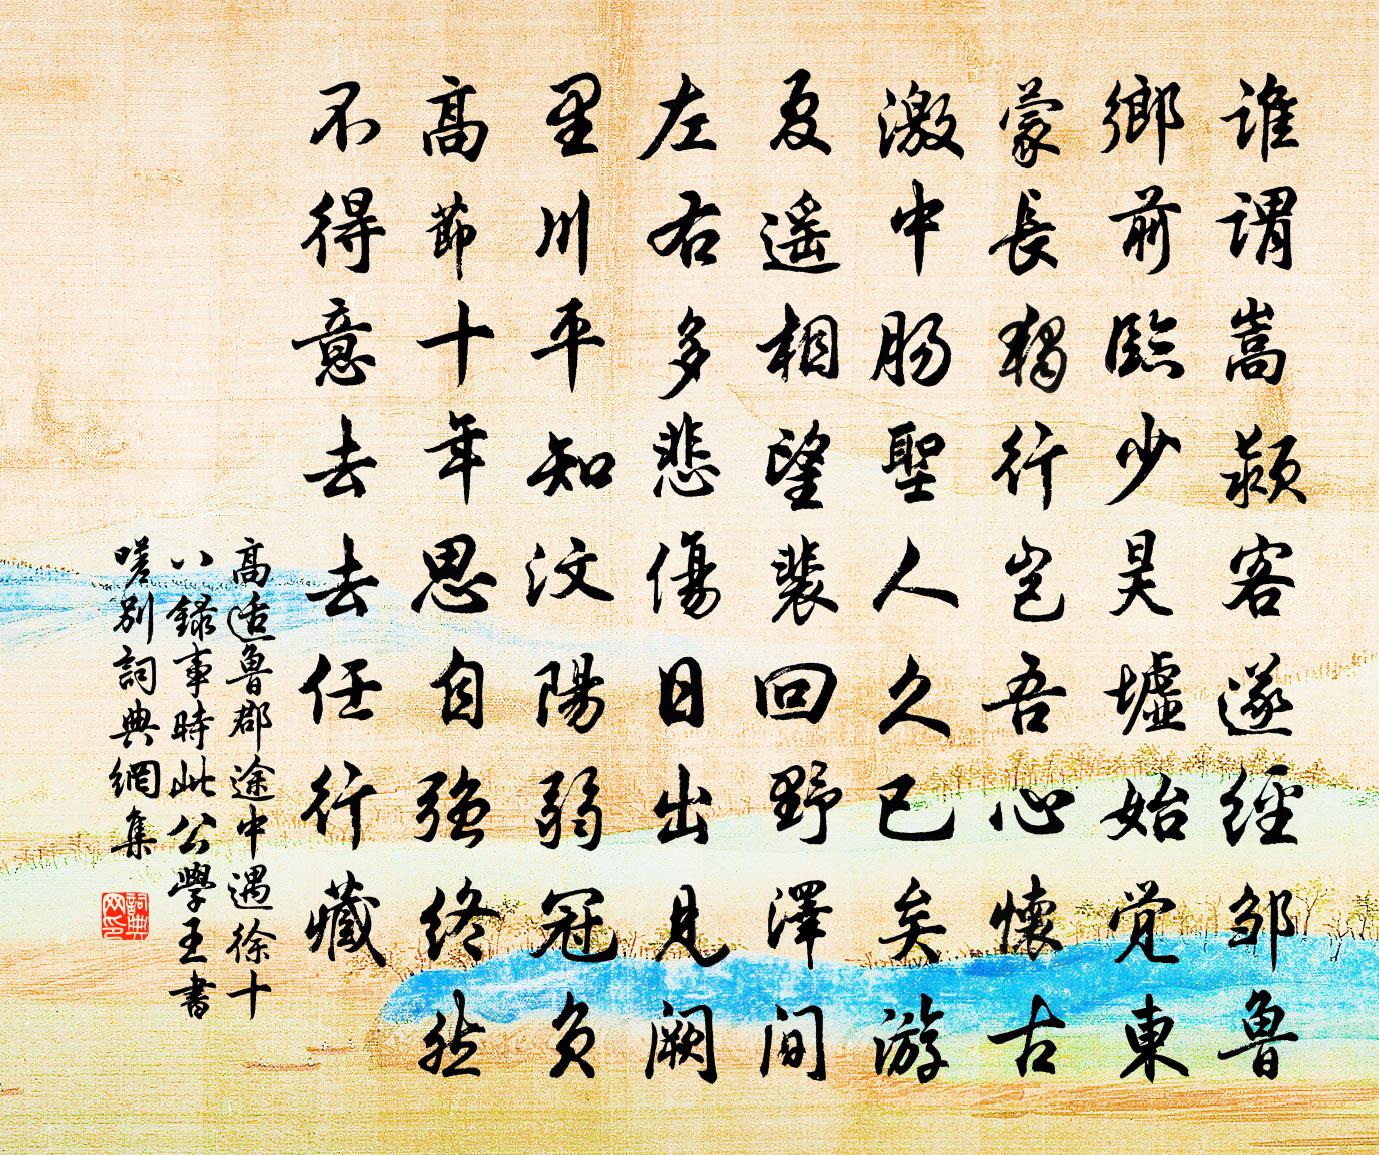 誰謂嵩潁客遂經鄒魯
鄉前臨少昊墟始覺東
蒙長獨行豈吾心懷古
激中腸聖人久已矣游
夏遙相望裴回野澤間
左右多悲傷日出見闕
里川平知汶陽弱冠負
高節十年思自強終然
不得意去去任行藏
高适魯郡途中遇徐十
八錄事時此公學王書
嗟別詞典網集
詞典網印